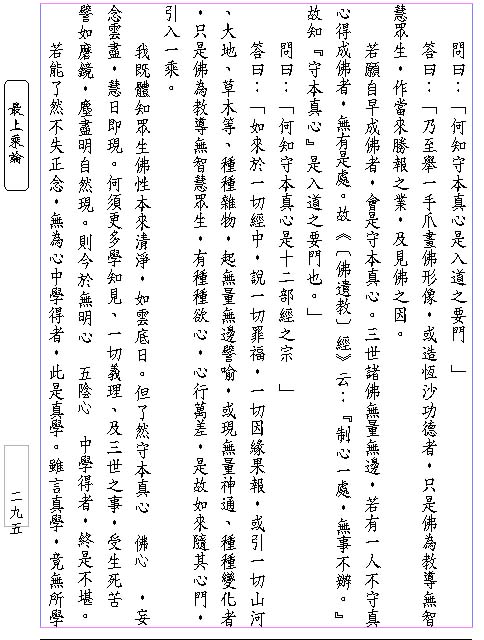 問曰：「何知守本真心是入道之要門　」
答曰：「乃至舉一手爪畫佛形像，或造恆沙功德者，只是佛為教導無智
慧眾生，作當來勝報之業，及見佛之因。
若願自早成佛者，會是守本真心。三世諸佛無量無邊，若有一人不守真
心得成佛者，無有是處。故《〔佛遺教〕經》云：『制心一處，無事不辦。』
故知『守本真心』是入道之要門也。」
問曰：「何知守本真心是十二部經之宗　」
答曰：「如來於一切經中，說一切罪福，一切因緣果報，或引一切山河
、大地、草木等、種種雜物，起無量無邊譬喻，或現無量神通、種種變化者
，只是佛為教導無智慧眾生，有種種欲心，心行萬差，是故如來隨其心門，
引入一乘。
我既體知眾生佛性本來清淨，如雲底日。但了然守本真心　佛心　，妄
念雲盡，慧日即現。何須更多學知見、一切義理、及三世之事，受生死苦
譬如磨鏡，塵盡明自然現。則今於無明心　五陰心　中學得者，終是不堪。
若能了然不失正念，無為心中學得者，此是真學。雖言真學，竟無所學
最上乘論
二九五